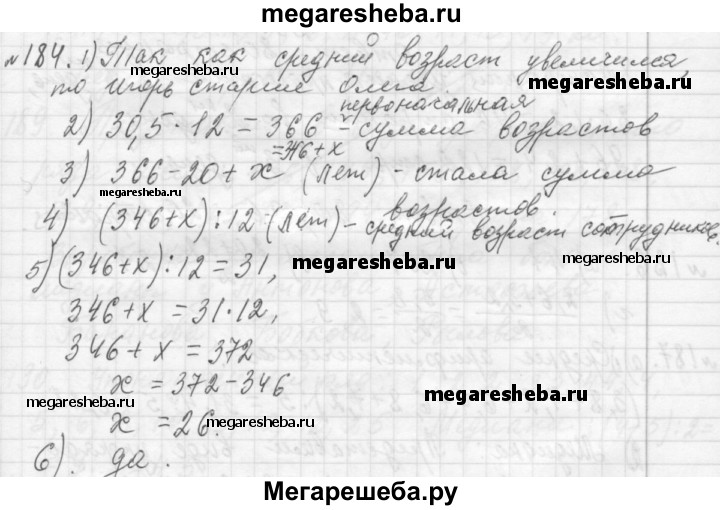 megaresheba.ru
№184. 1) Так как средний возраст увеличился,
megaresheba.ru
megaresheba.ru
то Игорь старше Олега.
первоначальная
2) 30,5·12 = 366 - сумма возрастов
=346+x
3) 366-20+x (лет) - стала сумма
megaresheba.ru
возрастов.
4) (346+x):12 (лет) - средний возраст сотрудников
5) (346+x):12 = 31,
megaresheba.ru
megaresheba.ru
346+x = 31·12,
346+x = 372
x = 372-346
megaresheba.ru
megaresheba.ru
x = 26.
megaresheba.ru
6). да.
Мегарешеба.ру